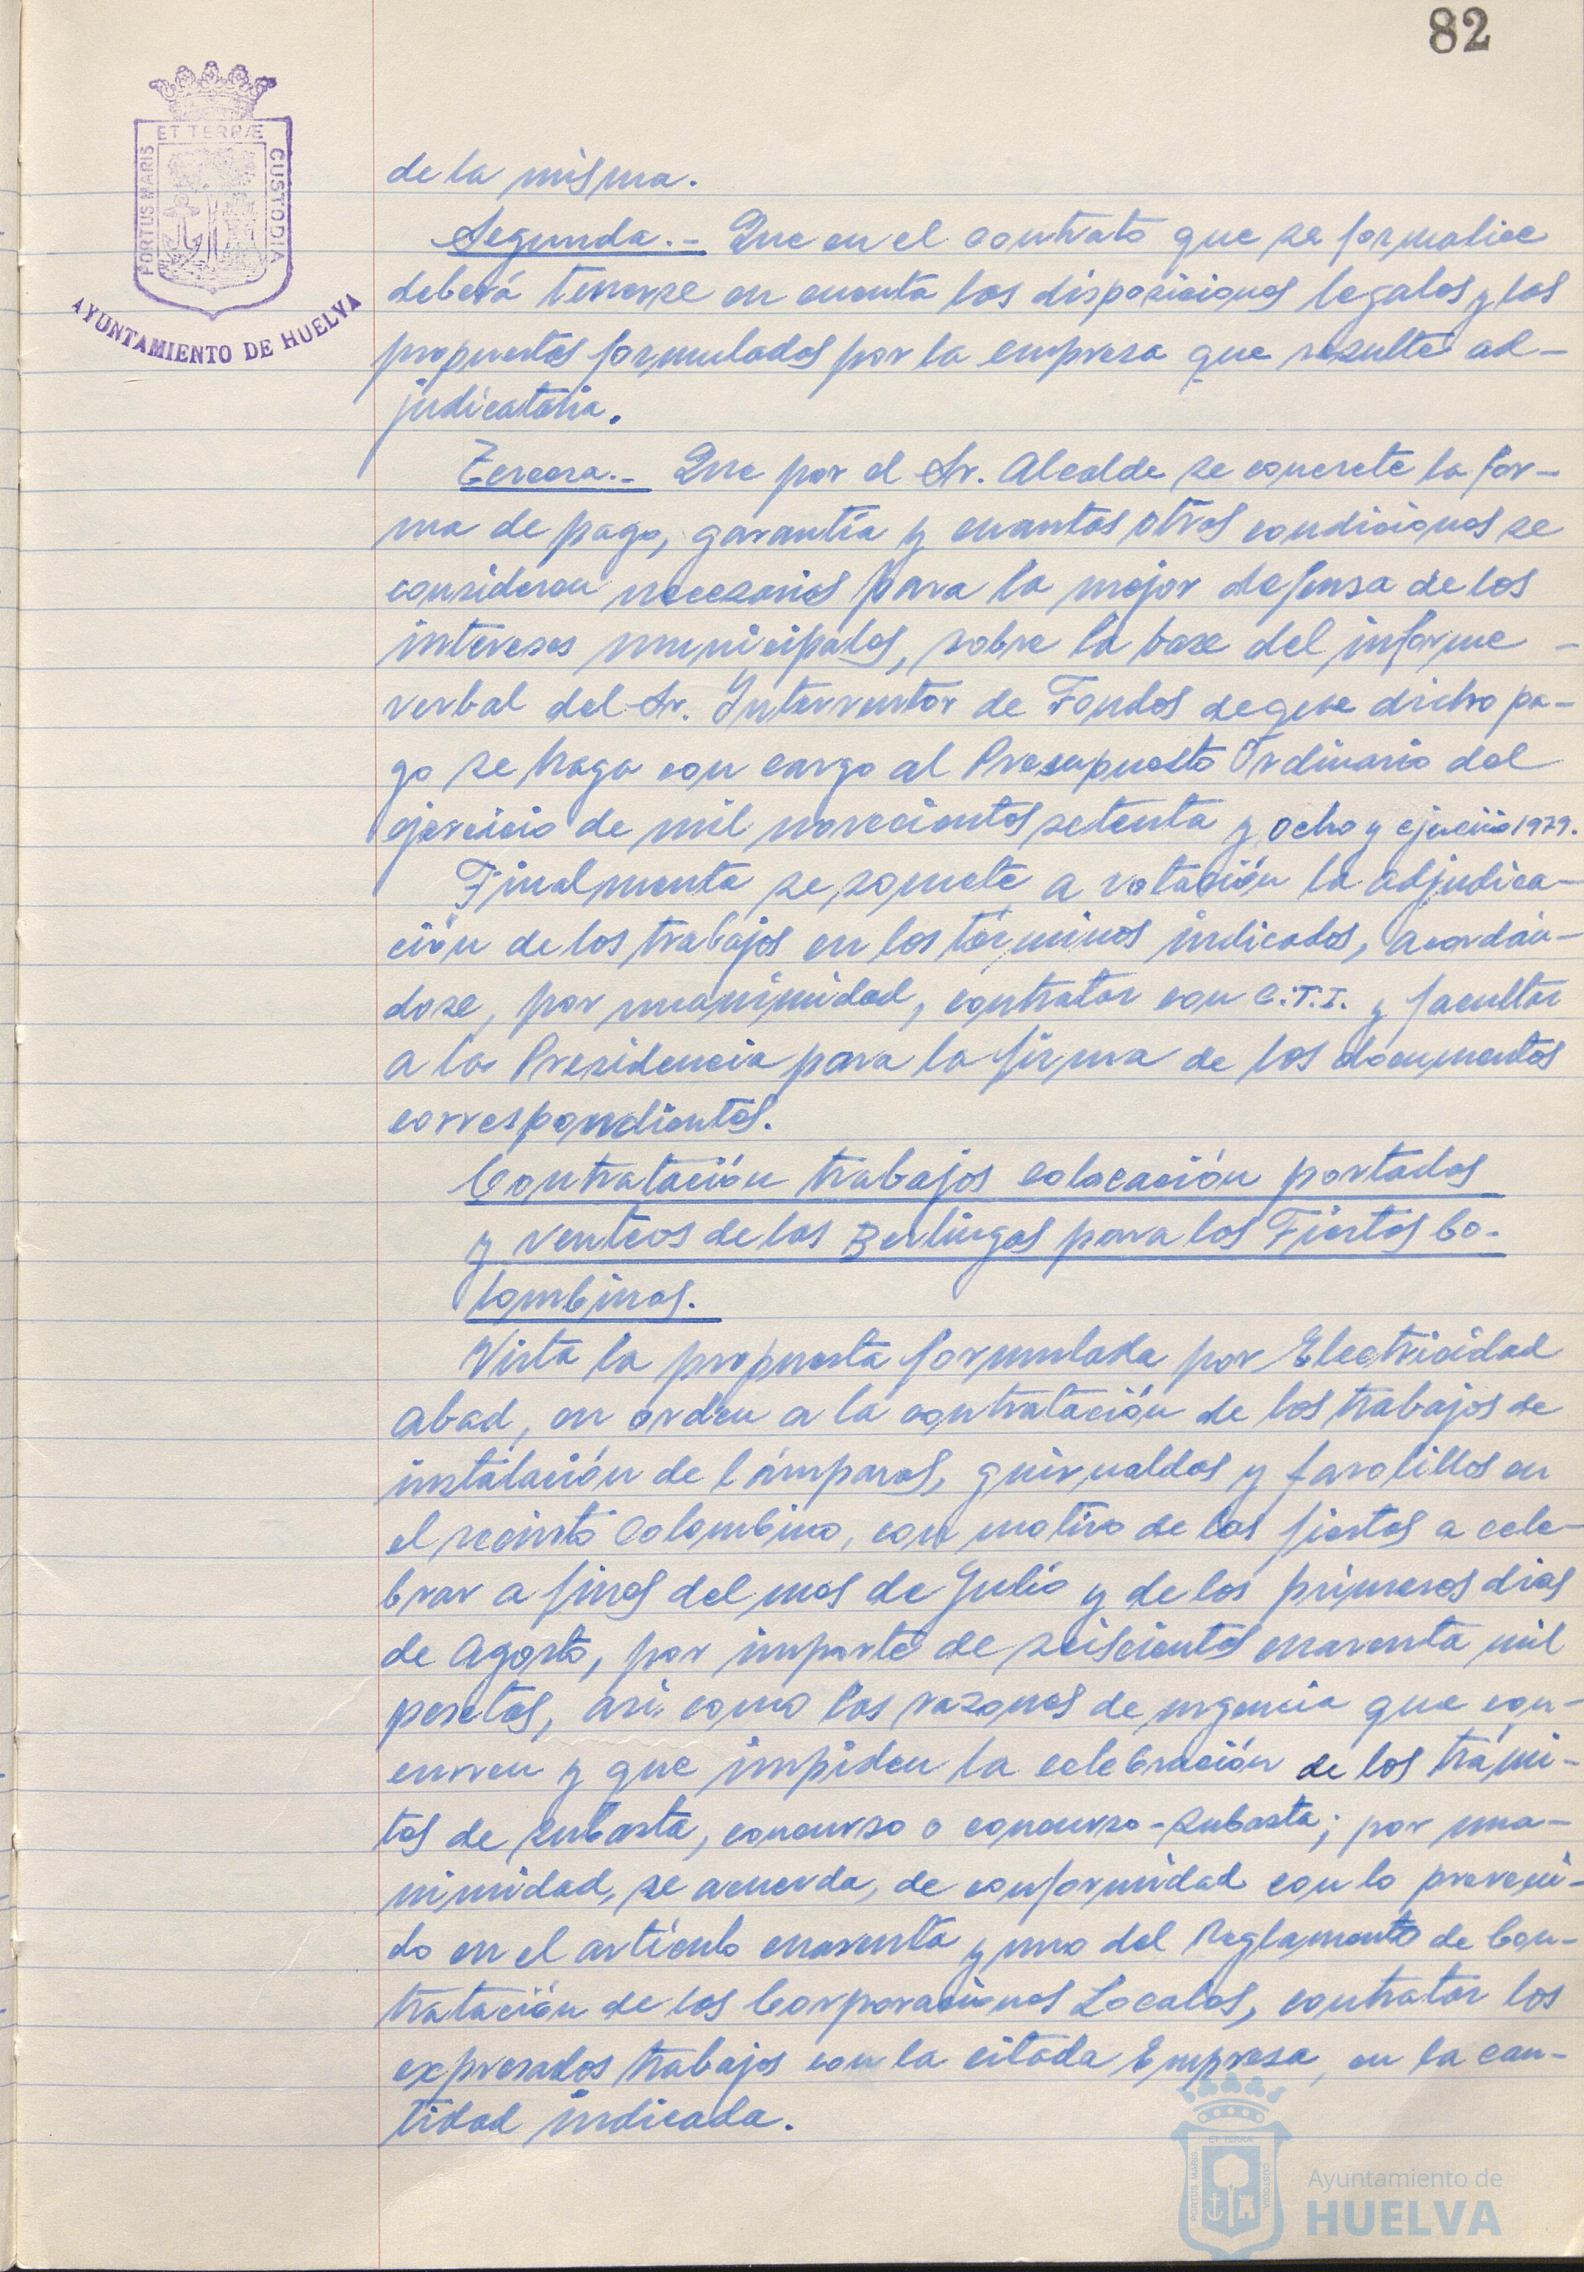 82
ET TERRÆ
PORTUS MARIS
CUSTODIA
AYUNTAMIENTO DE HUELVA
de la misma.
Segunda.- Que en el contrato que se formalice
deberá tenerse en cuenta las disposiciones legales y las
propuestas formuladas por la empresa que resulte ad-
judicataria.
Tercera.- Que por el Sr. Alcalde se concrete la for-
ma de pago, garantía y cuantas otras condiciones se
consideren necesarias para la mejor defensa de los
intereses municipales, sobre la base del informe -
verbal del Sr. Interventor de Fondos de que dicho pa-
go se haga con cargo al Presupuesto Ordinario del
ejercicio de mil novecientos setenta y ocho y ejercicio 1979.
Finalmente se somete a votación la adjudica-
ción de los trabajos en los términos indicados, acordán-
dose, por unanimidad, contratar con C.T.I. y facultar
a la Presidencia para la firma de los documentos
correspondientes.
Contratación trabajos colocación portadas
y venteos de las Berlingas para las Fiestas Co-
lombinas.
Vista la propuesta formulada por Electricidad
Abad, en orden a la contratación de los trabajos de
instalación de lámparas, guirnaldas y farolillos en
el recinto Colombino, con motivo de las fiestas a cele-
brar a fines del mes de Julio y de los primeros dias
de Agosto, por importe de seiscientas cuarenta mil
pesetas, asi como las razones de urgencia que con-
curren y que impiden la celebración de los trámi-
tes de subasta, concurso o concurso-subasta; por una-
nimidad, se acuerda, de conformidad con lo preveni-
do en el artículo cuarenta y uno del Reglamento de Con-
tratación de las Corporaciones Locales, contratar los
expresados trabajos con la citada Empresa, en la can-
tidad indicada.
ET TERRÆ
PORTUS MARIS
CUSTODIA
Ayuntamiento de
HUELVA